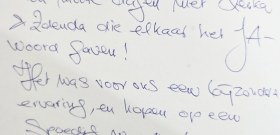 dagen met
die elkaar het JA-
woord gaven!
Het was voor ons een bijzondere
ervaring, en hopen op een